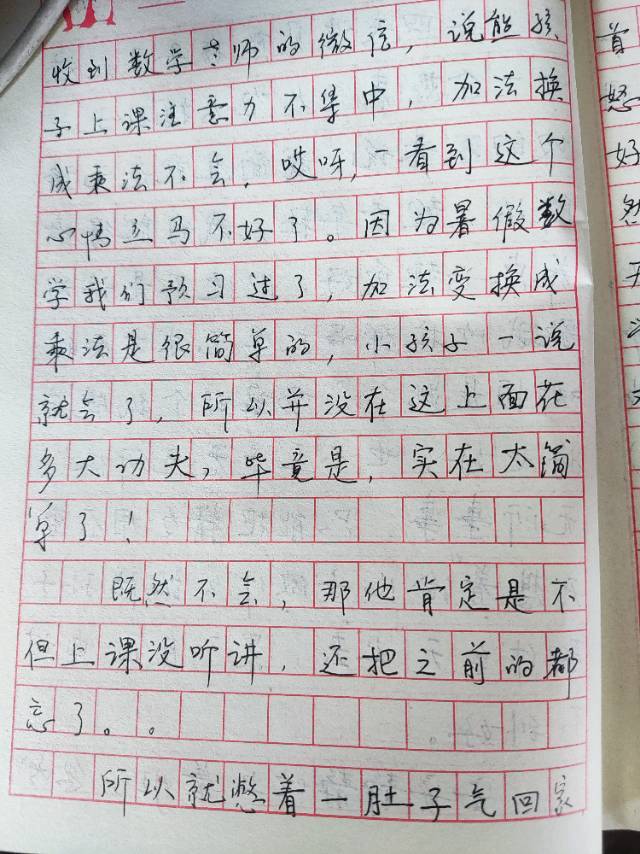 收到数学老师的微信，说熊孩
子上课注意力不集中，加法换
成乘法不会，哎呀，一看到这个
心情立马不好了。因为暑假数
学我们预习过了，加法变换成
乘法是很简单的，小孩子一说
就会了，所以并没在这上面花
多大功夫，毕竟是，实在太简
单了！
既然不会，那他肯定是不
但上课没听讲，还把之前的都
忘了。。
所以就憋着一肚子气回家
首
怒
好